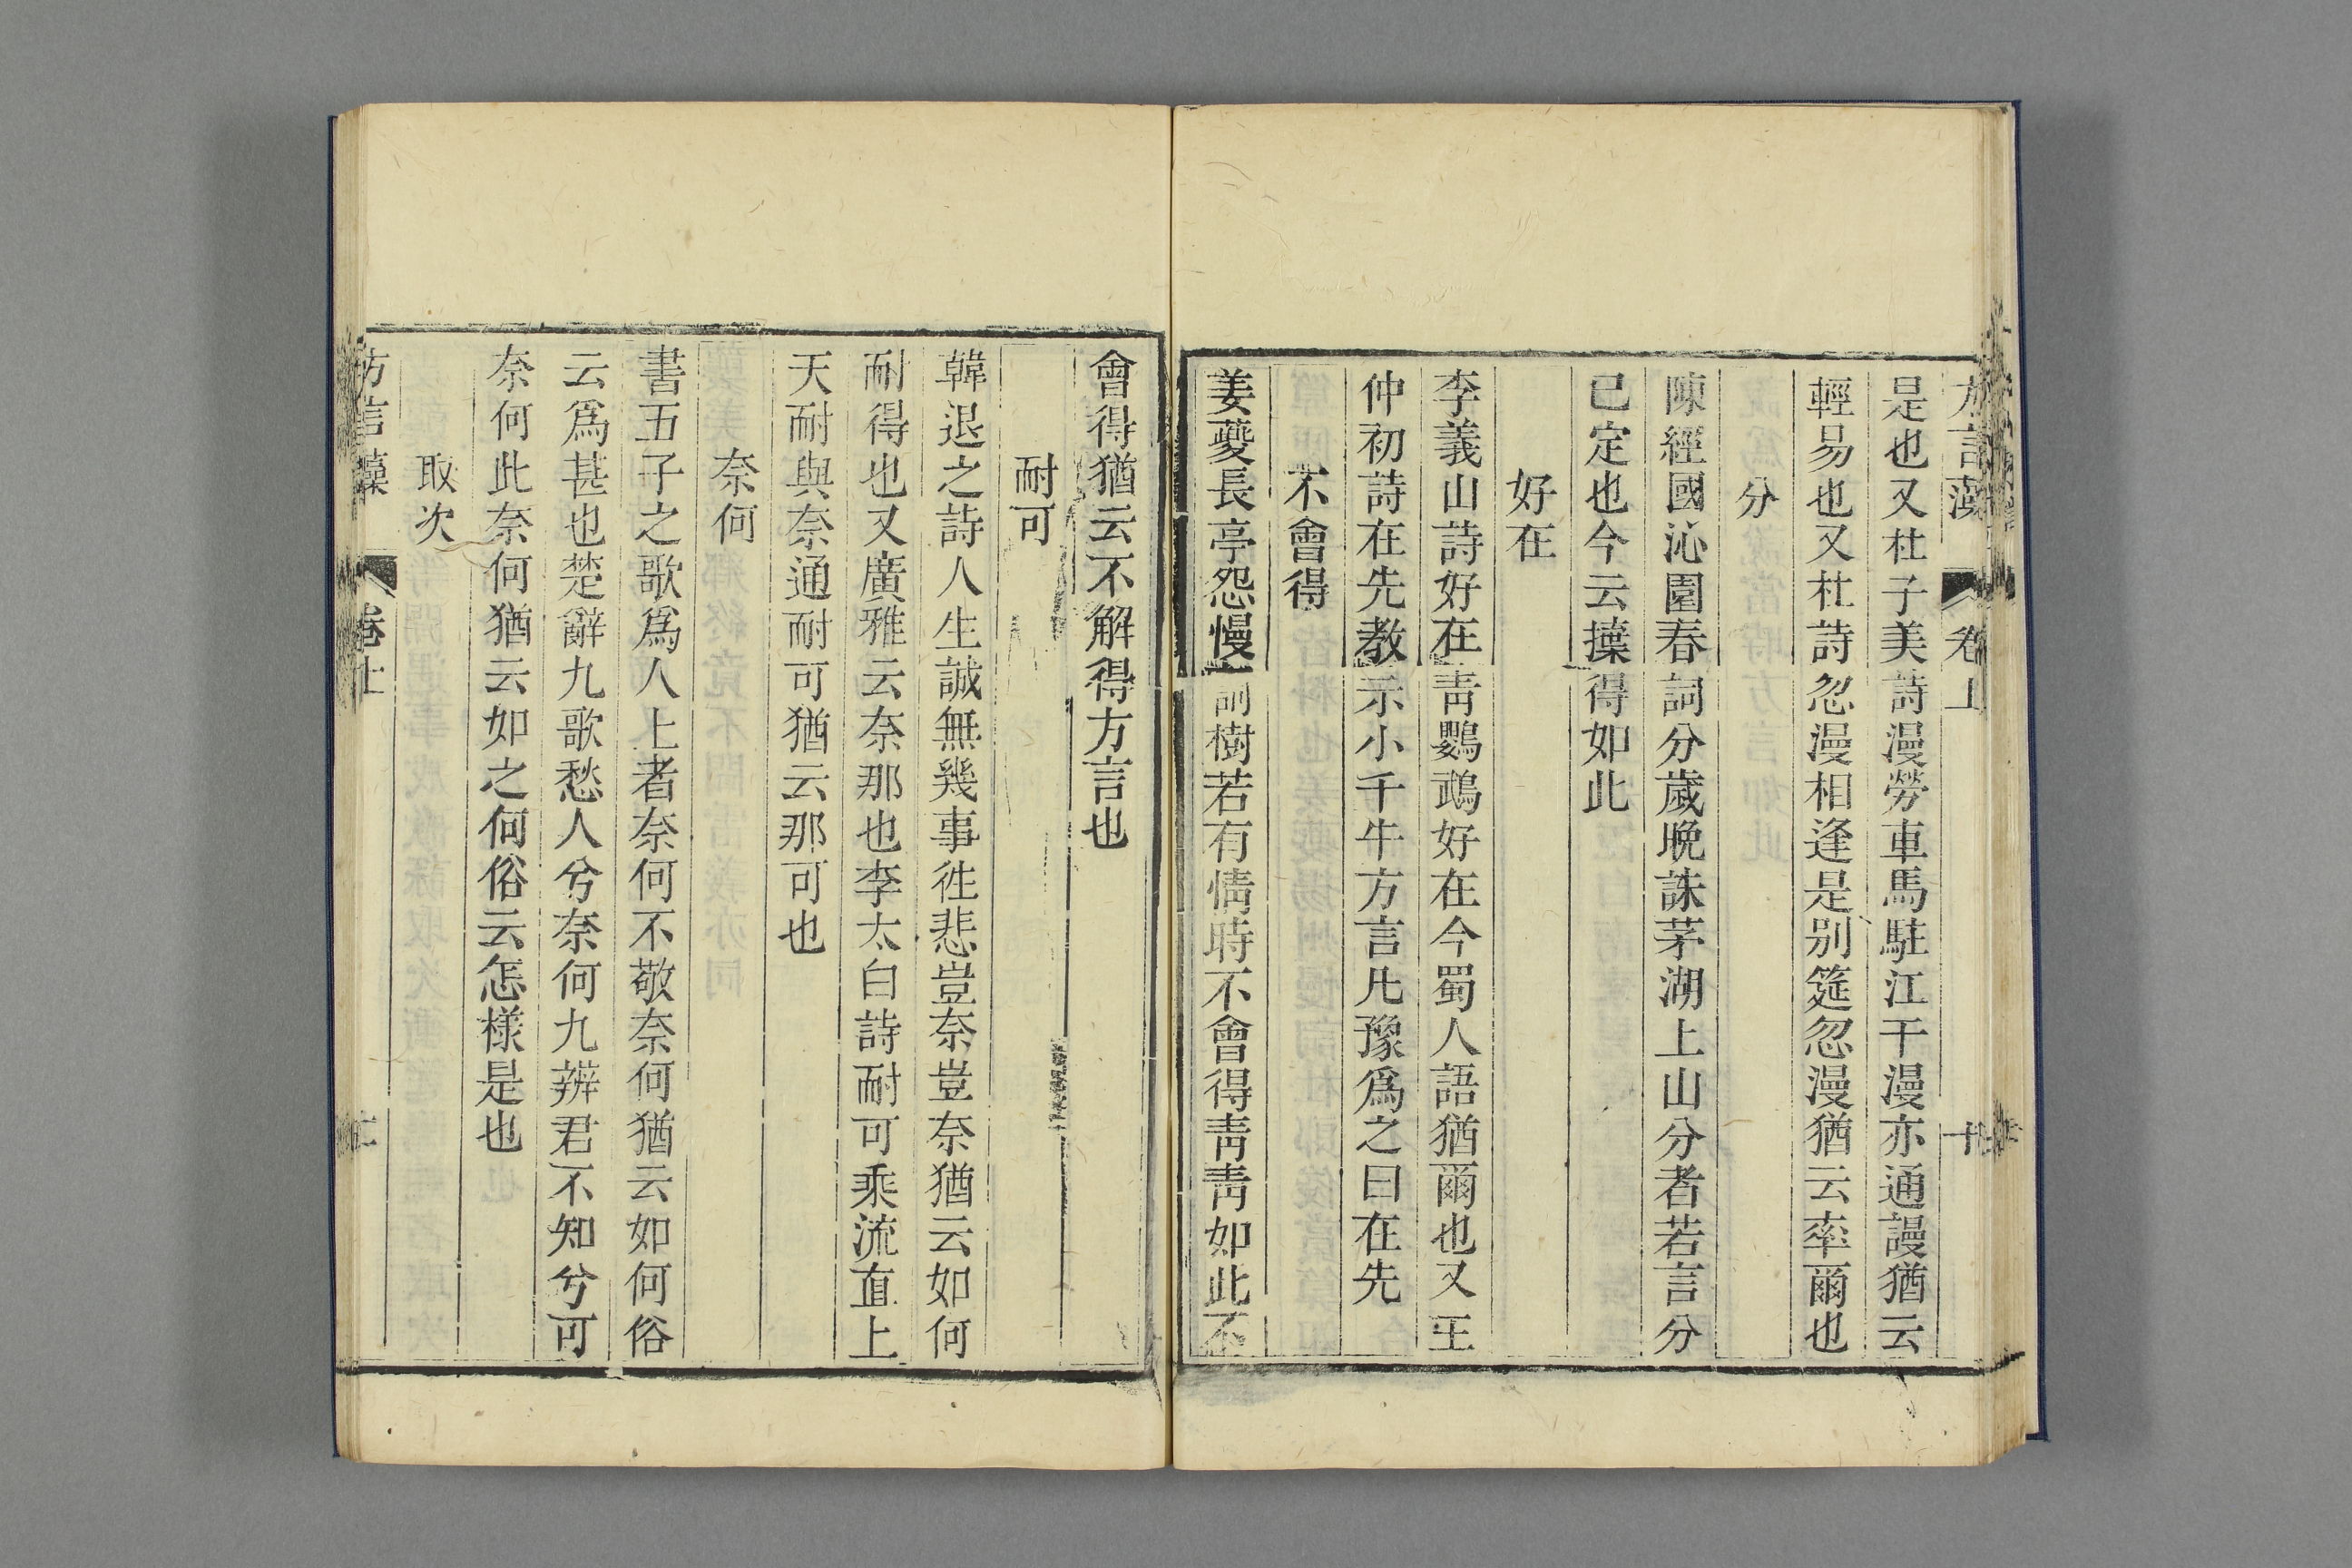 方言藻 卷上 十
是也又杜子美詩漫勞車馬駐江干漫亦通謾猶云
輕易也又杜詩忽漫相逢是别筵忽漫猶云率爾也
分
陳經國沁園春詞分歲晚誅茅湖上山分者若言分
已定也今云擡得如此
好在
李義山詩好在青鸚鵡好在今蜀人語猶爾也又王
仲初詩在先教示小千牛方言凡豫爲之曰在先
不會得
姜夔長亭怨慢詞樹若有情時不會得青青如此不
會得猶云不解得方言也
耐可
韓退之詩人生誠無幾事徃悲豈奈豈奈猶云如何
耐得也又廣雅云奈那也李太白詩耐可乘流直上
天耐與奈通耐可猶云那可也
奈何
書五子之歌爲人上者奈何不敬奈何猶云如何俗
云爲甚也楚辭九歌愁人兮奈何九辨君不知兮可
奈何此奈何猶云如之何俗云怎樣是也
取次
方言藻 卷上